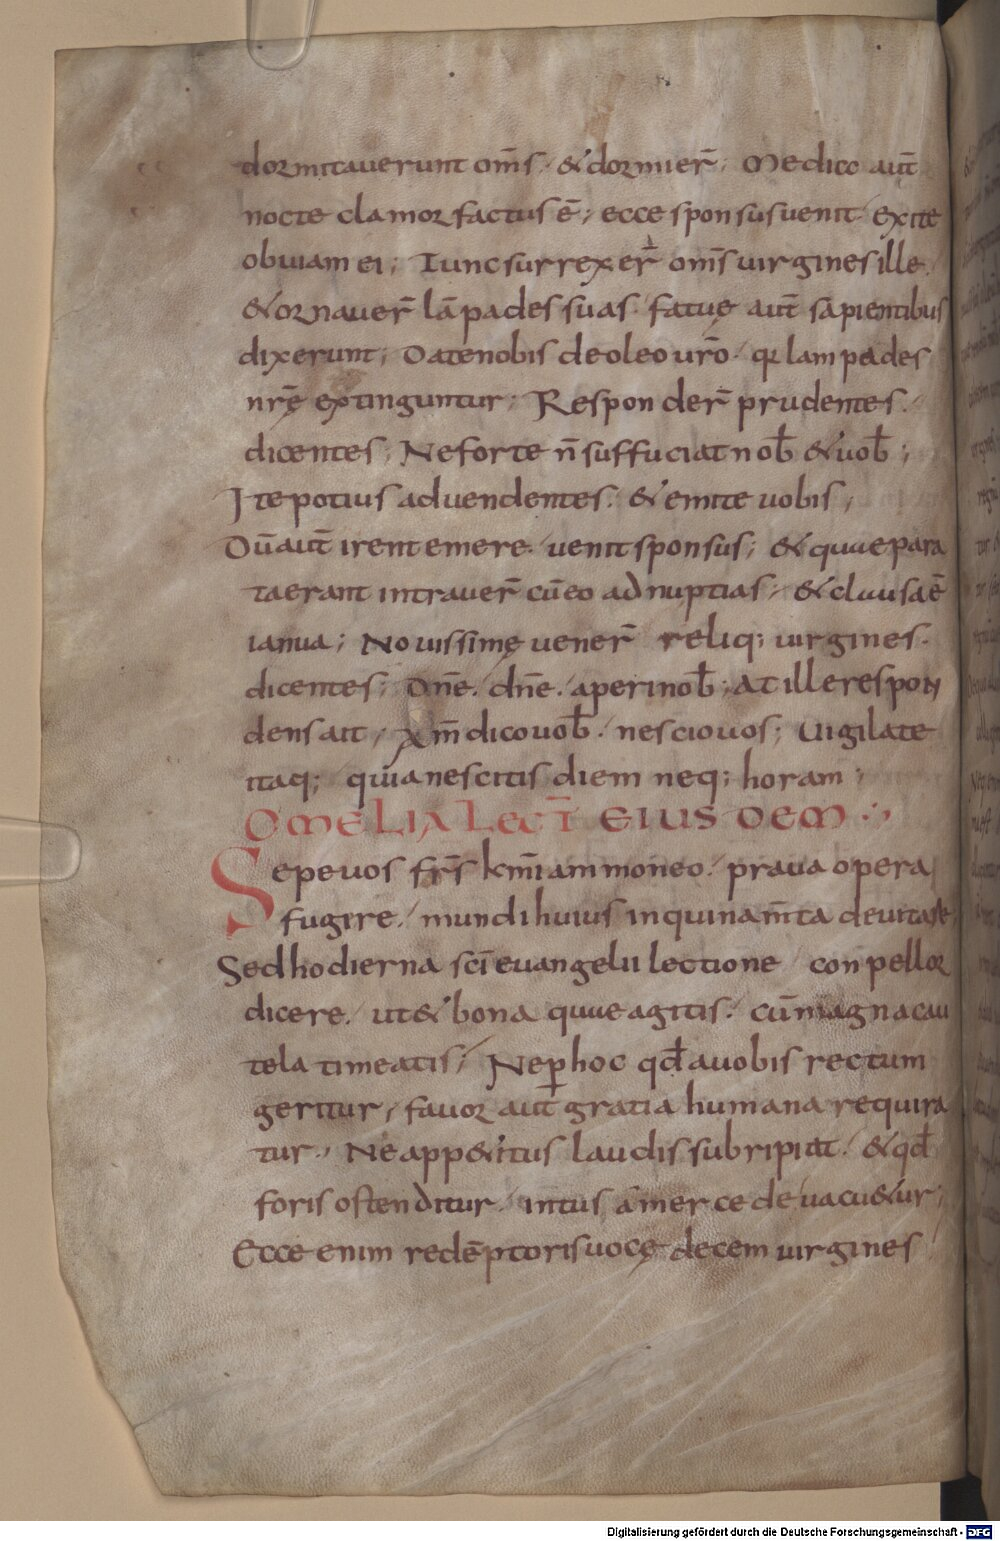 dormitauerunt om̄s· & dormier̄; Medico aut̄
nocte clamor factus ē; ecce sponsus uenit· exite
obuiam ei; Tunc surrexer̄ om̄s uirgines ille·
& ornauer̄ lāpades suas· fatuę aut̄ sapientibus
dixerunt; Date nobis de oleo ur̄o· qr lampades
nr̄ę extinguntur; Responder̄ prudentes·
dicentes; Ne forte n̄ suffuciat nob̄ & uob̄;
Ite potius ad uendentes· & emite uobis;
Dū aut̄ irent emere· uenit sponsus; & quae para
ta erant intrauer̄ cū eo ad nuptias; & clausa ē
ianua; Nouissimę uener̄ reliq; uirgines·
dicentes; Dn̄e· dn̄e· aperi nob̄; At ille respon
dens ait, Am̄ dico uob̄· nescio uos; Uigilate
itaq; quia nescitis diem neq; horam;
OMELIA LECT̄ EIUSDEM
Sepe uos fr̄s km̄i ammoneo· praua opera
fugire· mundi huius inquinam̄ta deuitare
Sed hodierna sc̄i euangelii lectione conpellor
dicere· ut & bona quae agitis· cū magna cau
tela timeatis; Ne ꝑ hoc qd̄ a uobis rectum
geritur, fauor aut gratia humana requira
tur· Ne app&itus laudis subripiat· & qd̄
foris ostenditur· intus a mercede uacu&ur;
Ecce enim redēptoris uocę decem uirgines
Digitalisierung gefördert durch die Deutsche Forschungsgemeinschaft - DFG